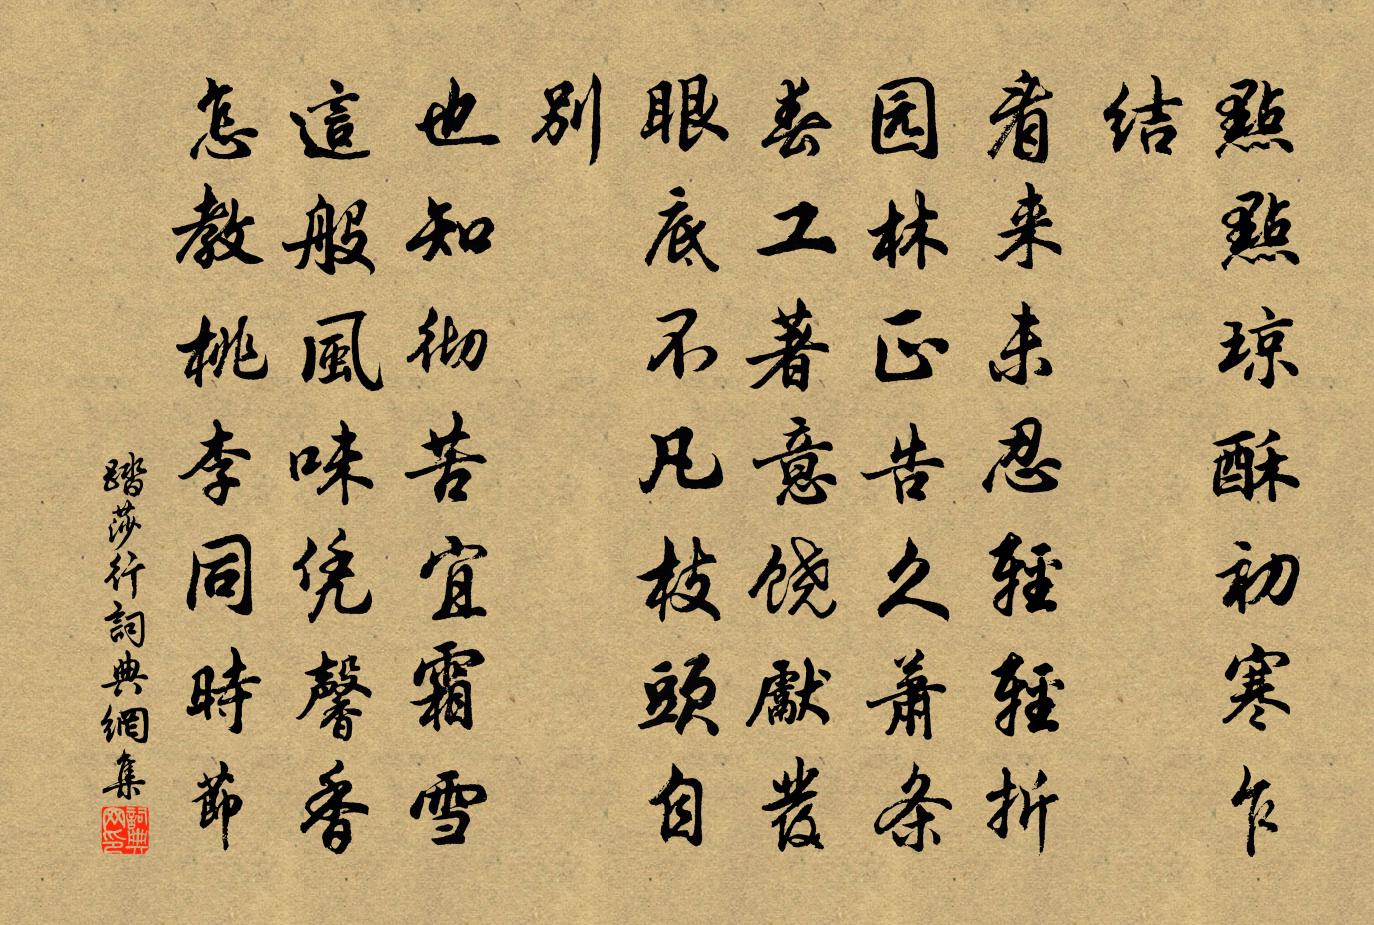 點點琼酥初寒乍
结
看来未忍輕輕折
园林正告久萧条
春工著意饶獻發
眼底不凡枝頭自
别
也知彻苦宜霜雪
這般風味凭馨香
怎教桃李同時節
踏莎行詞典網集
詞典网印